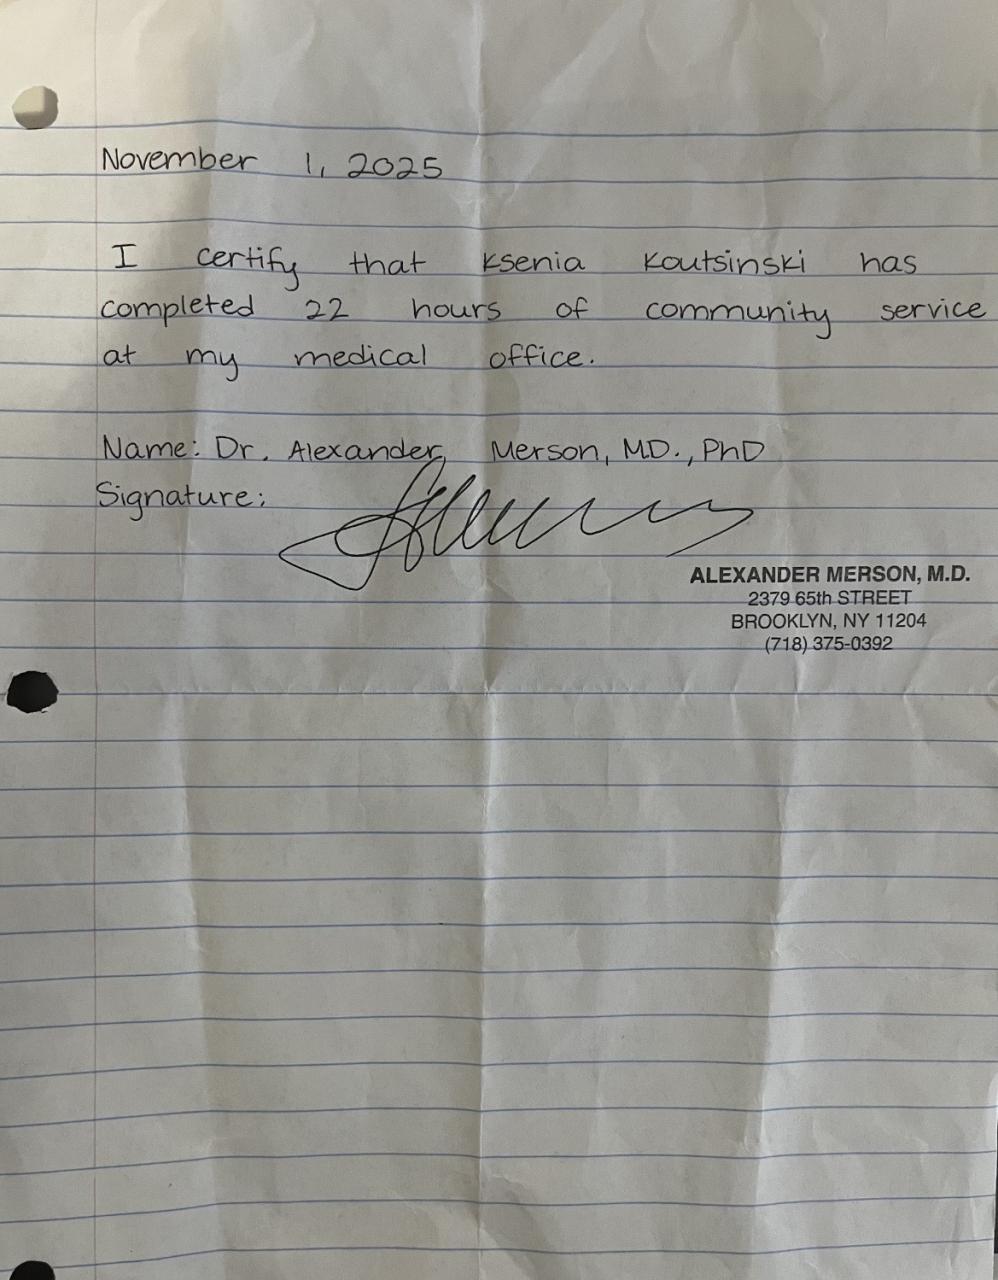 November 1, 2025
I certify that Ksenia Koutsinski has
completed 22 hours of community service
at my medical office.
Name: Dr. Alexander Merson, MD., PhD
Signature:
ALEXANDER MERSON, M.D.
2379 65th STREET
BROOKLYN, NY 11204
(718) 375-0392